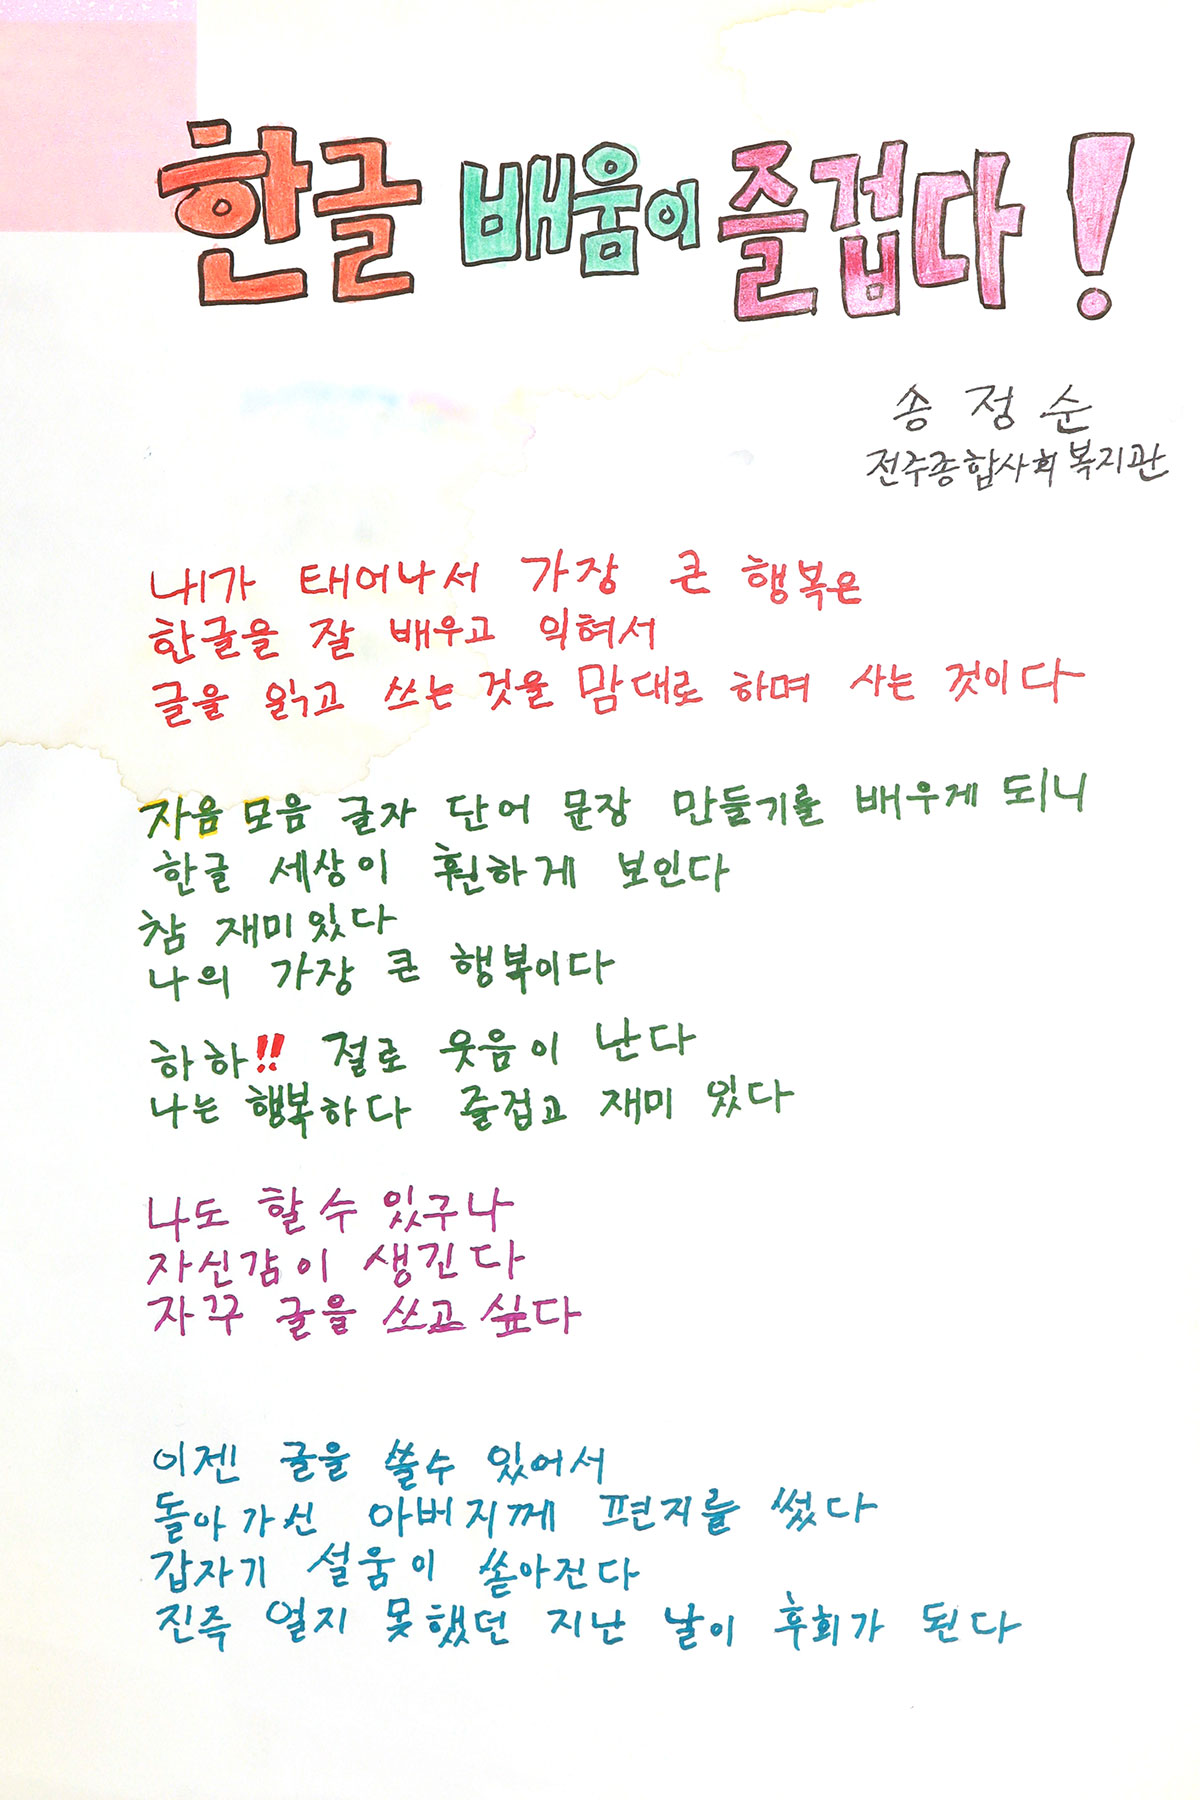 한글 배움이 즐겁다!
송정순
전주종합사회복지관
내가 태어나서 가장 큰 행복은
한글을 잘 배우고 익혀서
글을 읽고 쓰는 것을 맘대로 하며 사는 것이다
자음 모음 글자 단어 문장 만들기를 배우게 되니
한글 세상이 훤하게 보인다
참 재미있다
나의 가장 큰 행복이다
하하!! 절로 웃음이 난다
나는 행복하다 즐겁고 재미 있다
나도 할 수 있구나
자신감이 생긴다
자꾸 글을 쓰고 싶다
이젠 글을 쓸수 있어서
돌아가신 아버지께 편지를 썼다
갑자기 설움이 쏟아진다
진즉 열지 못했던 지난 날이 후회가 된다